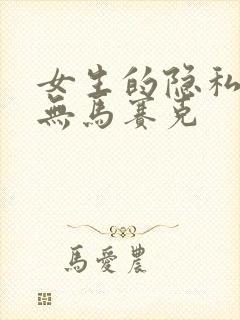 女生的隐私
無馬賽克
馬愛農